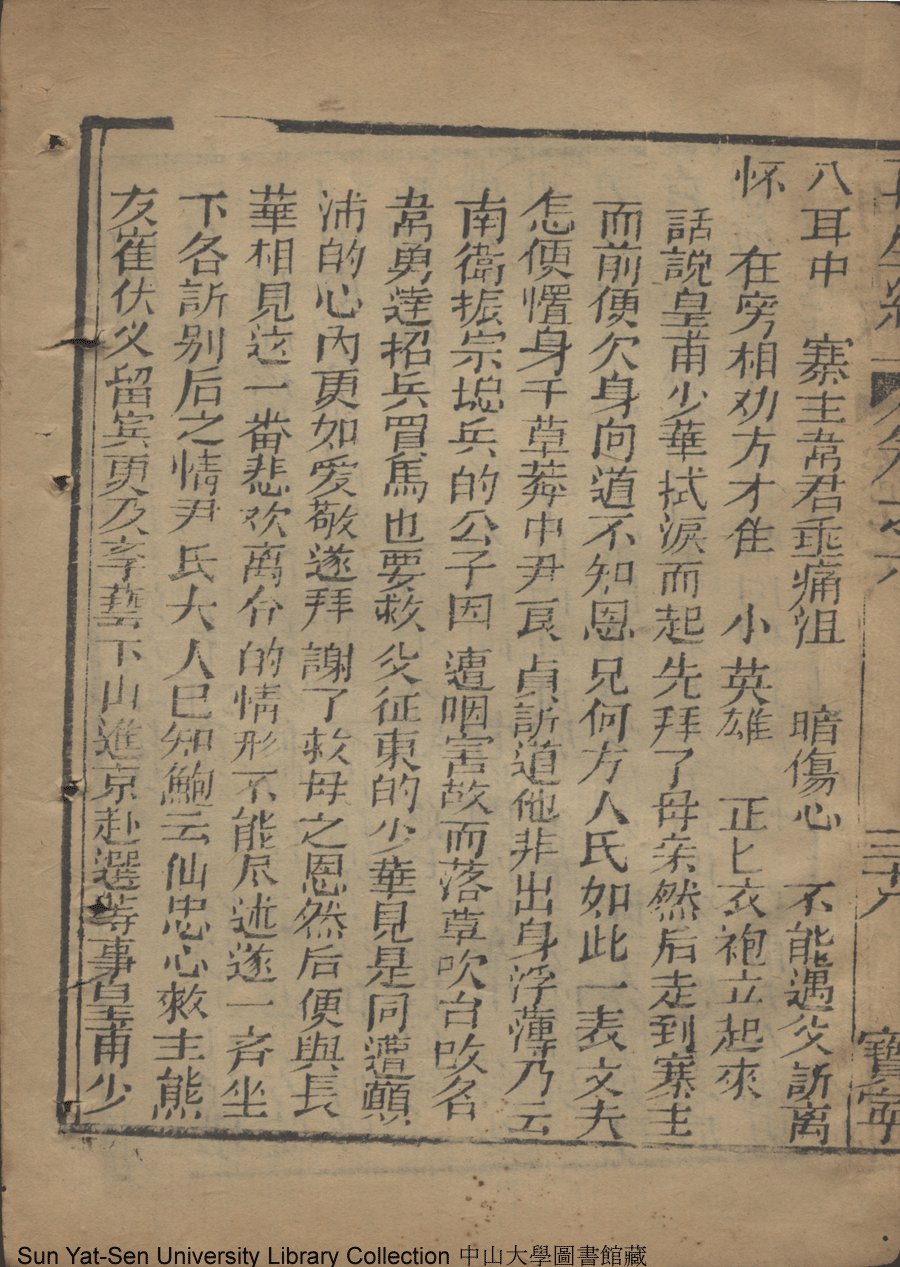 八耳中　寨主韋君垂痛沮　暗傷心　不能遇父訴離
怀　在旁相劝方才隹　小英雄　正匕衣袍立起來
話說皇甫少華拭淚而起先拜了母亲然后走到寨主
而前便欠身向道不知恩兄何方人氏如此一表文夫
怎便惰身千草莽中尹良貞訴道他非出身浮薄乃云
南衛振宗塢兵的公子因遭咽害故而落草吹台改名
韋勇達招兵買馬也要救父征東的少華見是同遭顛
沛的心內更如爱敬遂拜謝了救母之恩然后便與長
華相見这一畨悲欢离合的情形不能尽述遂一斉坐
下各訴别后之情尹氏大人已知鮑云仙忠心救主熊
友崔伏义留宾更及李藝下山進京赴選䓁事皇甫少
三十六
寶寧
Sun Yat-Sen University Library Collection 中山大學圖書館藏